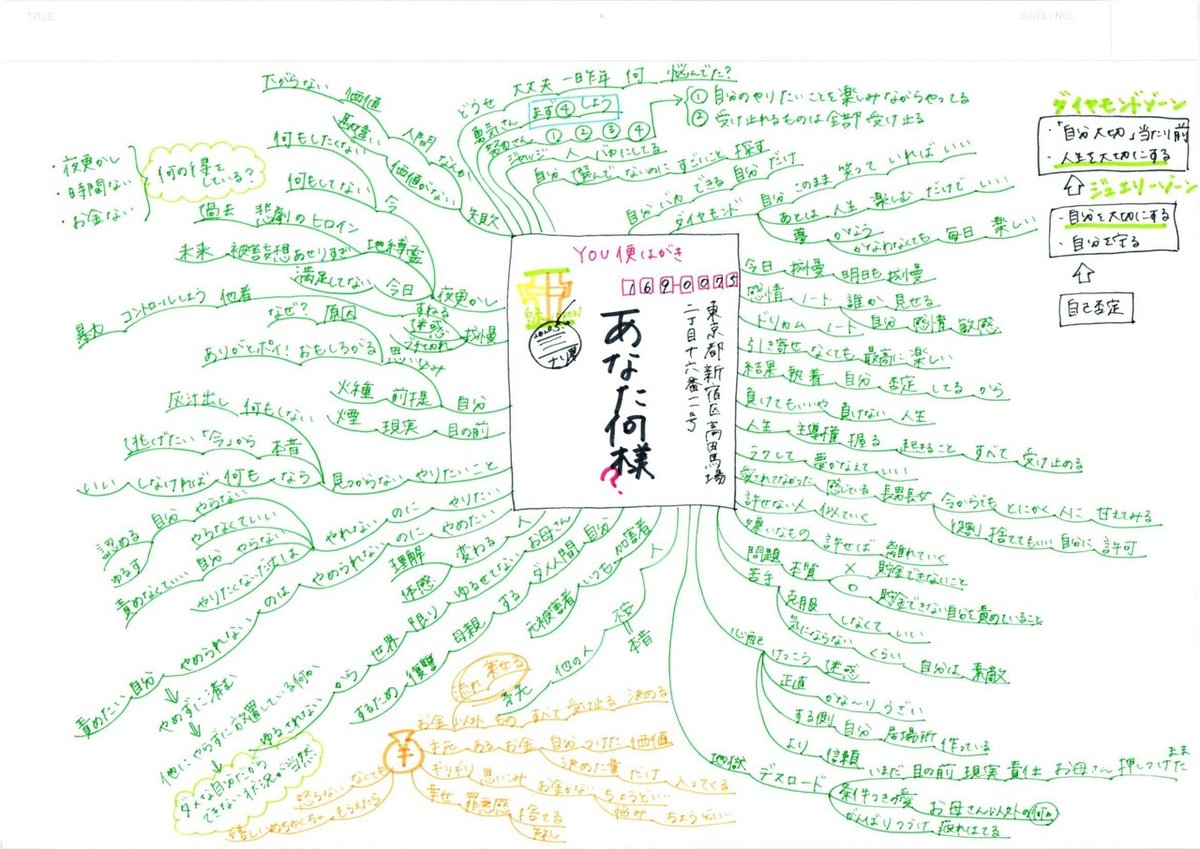 TITLE:
DATE/NO.
YOU便はがき
169-0075
東京都新宿区高田馬場
二丁目十六番一一号
あなた何様?
ダイヤモンドゾーン
・「自分大切」当たり前
・人生を大切にする
ジュエリーゾーン
・自分を大切にする
・自分を守る
自己否定
どうせ 大丈夫 一昨年 何 悩んでた?
まず④しよう
① ② ③ ④
① 自分のやりたいことを楽しみながらやってる
② 受け止れるものは全部受け止る
ジャッジ 人 バカにしてる
自分 選んでないのにすごいこと 探す
自分バカ できる 自分だけ
ダイヤモンド 自分 このまま 笑って いれば いい
あとは 人生 楽しむ だけで いい
夢 かなう
かなわなくても 毎日 楽しい
今日 拗慢 明日も 拗慢
感情 ノート 誰か 見せる
ドリカム ノート 自分 感情 敏感
引き寄せ なくても 最高に 楽しい
結果 執着 自分 否定 してる から
負けてもいいや 負けない 人生
人生 主導権 握る 起きること すべて 受け止める
ラクして 夢かなえて いい
愛されてなかった 感じている 長男長女 今からでも とにかく 人に 甘えてみる
役割 捨ててもいい 自分に 許可
許せない人 似ていく
嫌いなもの 許せば 離れていく
問題 本質 × 貯金できないこと
○ 貯金できない自分を責めていること
苦手 克服 しなくて いい
気にならない くらい 自分は 素敵
心配 けっこう 迷惑
正直 かな〜り うざい
する側 自分 居場所 作っている
より 信頼
地獄 デスロード いまだ 目の前 現実 責任 お母さん 押しつけた まま
条件つきの愛 お母さん以外の何か
がんばりつづけ 疲れはてる
人 不安 本音
他の人 幸先
加害者 いつも 元被害者
自分 ダメ人間 する 母親 復讐 するため
お母さん ゆるせてない 限り 世界 から ゆるされない
人 変わる 理解
体感
やめたい のに やめられない のは やめられない 自分 責めたい
やめずに済む
他にやらずに放置している何か
ダメな自分だから
できない状況が当然
やりたい のに やれない
やらない 自分 認める
やらなくていい ゆるす
やらない 自分 責めなくていい
やりたくないだけ
やりたいこと 見つからない なう 何も しなければ いい
本音 「今」から 逃げたい
何もしない 灰汁出し
自分 前提 火種
目の前 現実 煙
思いこみ おもしろがる ありがとポイ!
原因 なぜ?
拗慢 すねる
迷惑
他者 コントロールしよう 暴力
夜更かし 今日 満足してない
地縛霊
過去 悲劇のヒロイン
未来 被害妄想 あせりすぎ
今 何もしてない
何もしたくない
何の復讐をしている?
・夜更かし
・時間ない
・お金ない
失敗 価値がない 人間 なんか
勘違い
価値 下がらない
お金 以外 もの すべて 受け止る 決める
流れ 乗せる
手元 ある お金 自分 つけた 価値
ギリギリ 思いこみ 決めた量 だけ 入ってくる
お金がない ちょうどいい…
悩み ちょうどいい…
幸せ 罪悪感 捨てる
許し
なくても 怒らない
もらえたら めちゃくちゃ 嬉しい